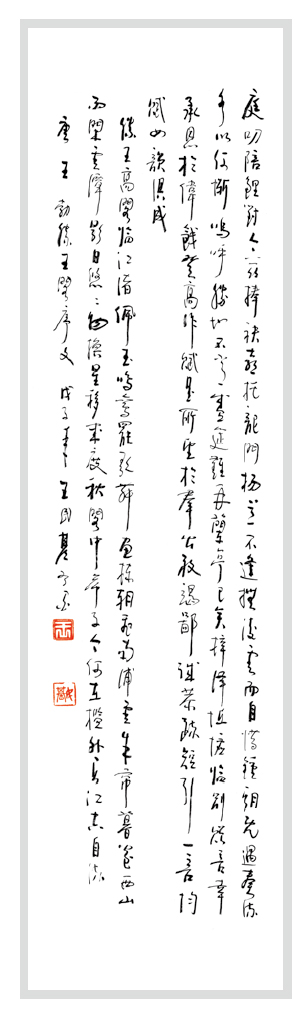 庭叨陪鯉對今茲捧袂喜托龍門楊意不逢撫凌雲而自惜鍾期既遇奏流
水以何慚嗚呼勝地不常盛筵難再蘭亭已矣梓澤坵墟臨別贈言幸
承恩於偉餞登高作賦是所望於羣公敢竭鄙誠恭疏短引一言均
賦四韻俱成
滕王高閣臨江渚佩玉鳴鸞罷歌舞畫棟朝飛南浦雲朱帘暮卷西山
雨閑雲潭影日悠悠物換星移幾度秋閣中帝子今何在檻外長江空自流
唐王勃滕王閣序文 戊子春 王國